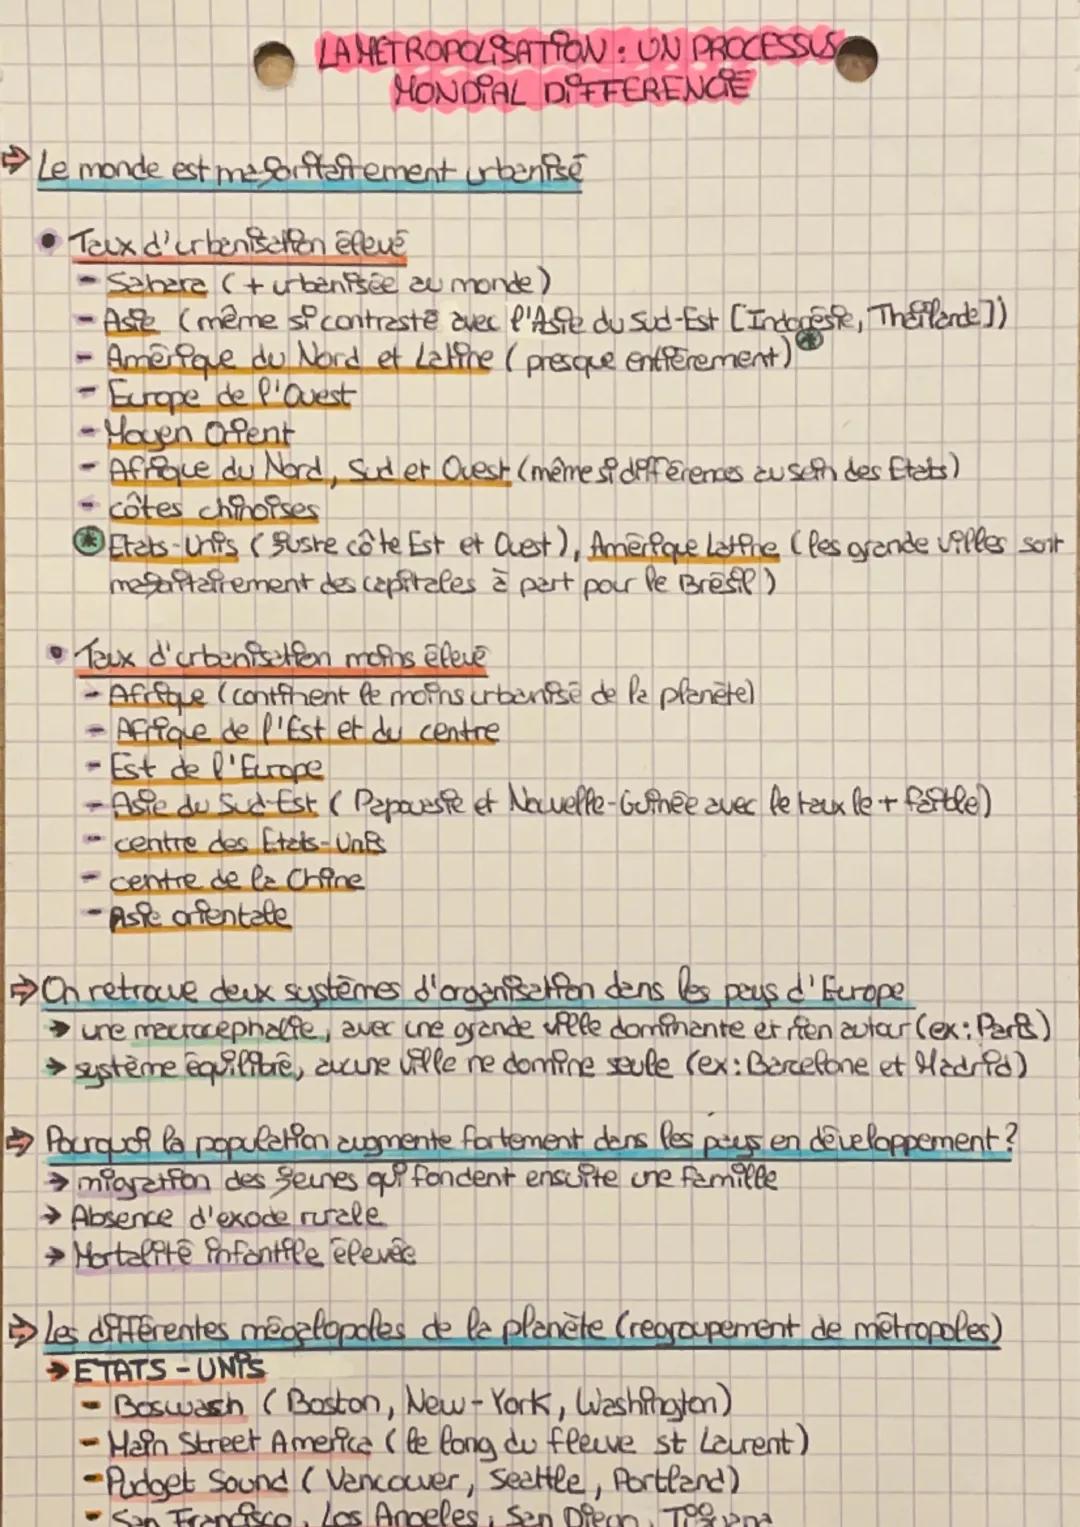 LA METROPOLISATION : UN PROCESSUS
MONDIAL DIFFERENCIE
⇒ Le monde est majoritairement urbanisé
• Taux d'urbanisation élevé
- Sahara (+ urbanisée au monde)
- Asie (même si contrasté avec l'Asie du Sud-Est [Indonésie, Thaïlande])
- Amérique du Nord et Latine (presque entièrement) *
- Europe de l'Ouest
- Moyen Orient
- Afrique du Nord, Sud et Ouest (même si différences au sein des Etats)
- côtes chinoises
* Etats-Unis (juste côte Est et Ouest), Amérique Latine (les grande villes sont
majoritairement des capitales à part pour le Brésil)
• Taux d'urbanisation moins élevé
- Afrique (continent le moins urbanisé de la planète)
- Afrique de l'Est et du centre
- Est de l'Europe
- Asie du Sud-Est (Papouasie et Nouvelle-Guinée avec le taux le + faible)
- centre des Etats-Unis
- centre de la Chine
- Asie orientale
⇒ On retrouve deux systèmes d'organisation dans les pays d'Europe
→ une macrocéphalie, avec une grande ville dominante et rien autour (ex: Paris)
→ système équilibré, aucune ville ne domine seule (ex: Barcelone et Madrid)
⇒ Pourquoi la population augmente fortement dans les pays en développement ?
→ migration des jeunes qui fondent ensuite une famille
→ Absence d'exode rurale
→ Mortalité infantile élevée
⇒ Les différentes mégalopoles de la planète (regroupement de métropoles)
→ ETATS - UNIS
- Boswash (Boston, New-York, Washington)
- Main Street America (le long du fleuve st Laurent)
- Pudget Sound (Vancouver, Seattle, Portland)
- San Francisco, Los Angeles, San Diego, Tijuana